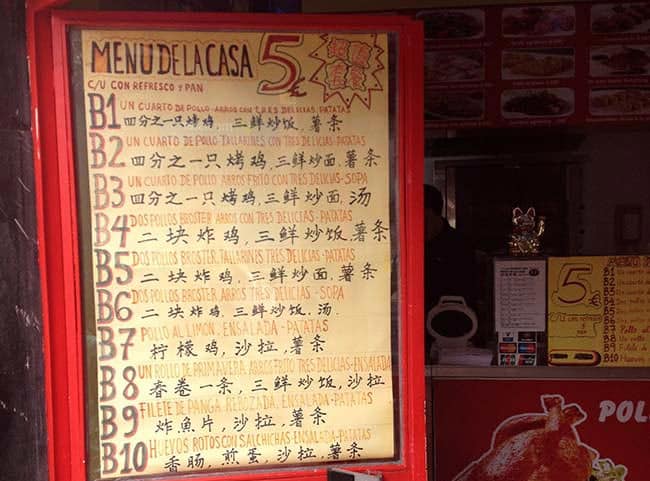 MENU DE LA CASA 5€
超值套餐
C/U CON REFRESCO Y PAN
B1 UN CUARTO DE POLLO ARROS CON TRES DELICIAS, PATATAS
四分之一只烤鸡, 三鲜炒饭, 薯条
B2 UN CUARTO DE POLLO-TALLARINES CON TRES DELICIAS-PATATAS
四分之一只烤鸡, 三鲜炒面, 薯条
B3 UN CUARTO DE POLLO ARROS FRITO CON TRES DELICIAS-SOPA
四分之一只烤鸡, 三鲜炒面, 汤
B4 DOS POLLOS BROSTER ARROS CON TRES DELICIAS-PATATAS
二块炸鸡, 三鲜炒饭, 薯条
B5 DOS POLLOS BROSTER, TALLARINES TRES DELICIAS-PATATAS
二块炸鸡, 三鲜炒面, 薯条
B6 DOS POLLOS BROSTER, ARROS TRES DELICIAS - SOPA
二块炸鸡, 三鲜炒饭, 汤.
B7 POLLO AL LIMON, ENSALADA-PATATAS
柠檬鸡, 沙拉, 薯条
B8 UN ROLLO DE PRIMAVERA, ARROS FRITO TRES DELICIAS-ENSALADA
春卷一条, 三鲜炒饭, 沙拉
B9 FILETE DE PANGA REBOZADA, ENSALADA-PATATAS
炸魚片, 沙拉, 薯条
B10 HUEVOS ROTOS CON SALCHICHAS-ENSALADA-PATATAS
香肠, 煎蛋, 沙拉, 薯条
5€
B1
B2
B3
B4
B5
B6
B7
B8
B9
B10 Huevo
POL